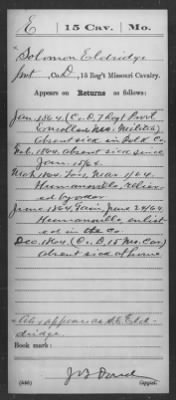 E 15 Cav. Mo.
Solomon Eldridge
Pvt., Co. D, 15 Reg't Missouri Cavalry.
Appears on Returns as follows:
Jan. 1864 (Co. D, 7 Regt Provl
Enrolled Mo. Militia)
Absent sick in Polk Co.
Feb. 1864 Absent sick since
Jan. 15/64.
Mch 1864 Loss, Mar. 1/64,
Humansville, reliev
ed by order
June 1864 Gain June 24/64
Humansville, enlist
ed in the Co.
Dec. 1864 (Co. D, 15 Mo. Cav.)
Absent sick at home
Also appears as S. Eld-
ridge
Book mark:
(646) Copyist.